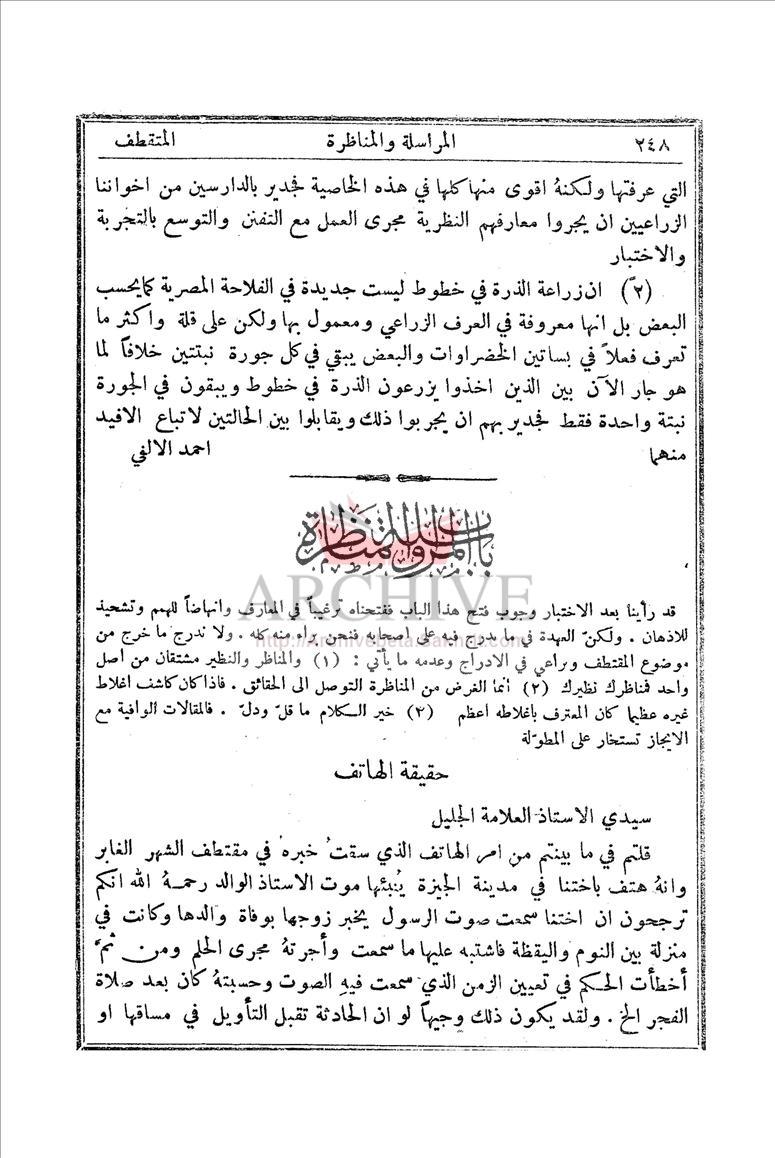 ٢٤٨ المراسلة والمناظرة المقتطف
التي عرفتها ولكنهُ اقوى منها كلها في هذه الخاصية فجدير بالدارسين من اخواننا
الزراعيين ان يجروا معارفهم النظرية مجرى العمل مع التفنن والتوسع بالتجربة
والاختبار
(٢ً) ان زراعة الذرة في خطوط ليست جديدة في الفلاحة المصرية كما يحسب
البعض بل انها معروفة في العرف الزراعي ومعمول بها ولكن على قلة واكثر ما
تعرف فعلاً في بساتين الخضراوات والبعض يبقي في كل جورة نبتتين خلافاً لما
هو جار الآن بين الذين اخذوا يزرعون الذرة في خطوط ويبقون في الجورة
نبتة واحدة فقط فجدير بهم ان يجربوا ذلك ويقابلوا بين الحالتين لاتباع الافيد
منهما احمد الالفي
باب المراسلة والمناظرة
ARCHIVE
http://Archivebeta.Sakhrit.com
قد رأينا بعد الاختبار وجوب فتح هذا الباب ففتحناه ترغيباً في المعارف وانهاضاً للهمم وتشحيذ
للاذهان . ولكنّ العهدة في ما يدرج فيه على اصحابه فنحن براء منه كله . ولا ندرج ما خرج عن
موضوع المقتطف ونراعي في الادراج وعدمه ما يأتي : (١) والمناظر والنظير مشتقان من أصل
واحد فمناظرك نظيرك (٢) انما الغرض من المناظرة التوصل الى الحقائق . فاذا كان كاشف اغلاط
غيره عظيما كان المعترف باغلاطه اعظم (٣) خير الكلام ما قلّ ودلّ . فالمقالات الوافية مع
الايجاز تستخار على المطوّلة
حقيقة الهاتف
سيدي الاستاذ العلامة الجليل
قلتم في ما بينتم من امر الهاتف الذي سقتُ خبرهُ في مقتطف الشهر الغابر
وانهُ هتف باختنا في مدينة الجيزة يُنبئها موت الاستاذ الوالد رحمهُ الله انكم
ترجحون ان اختنا سمعت صوت الرسول يخبر زوجها بوفاة والدها وكانت في
منزلة بين النوم واليقظة فاشتبه عليها ما سمعت وأجرتهُ مجرى الحلم ومن ثمَّ
أخطأت الحكم في تعيين الزمن الذي سمعت فيهِ الصوت وحسبتهُ كان بعد صلاة
الفجر الخ . ولقد يكون ذلك وجيهاً لو ان الحادثة تقبل التأويل في مساقها او